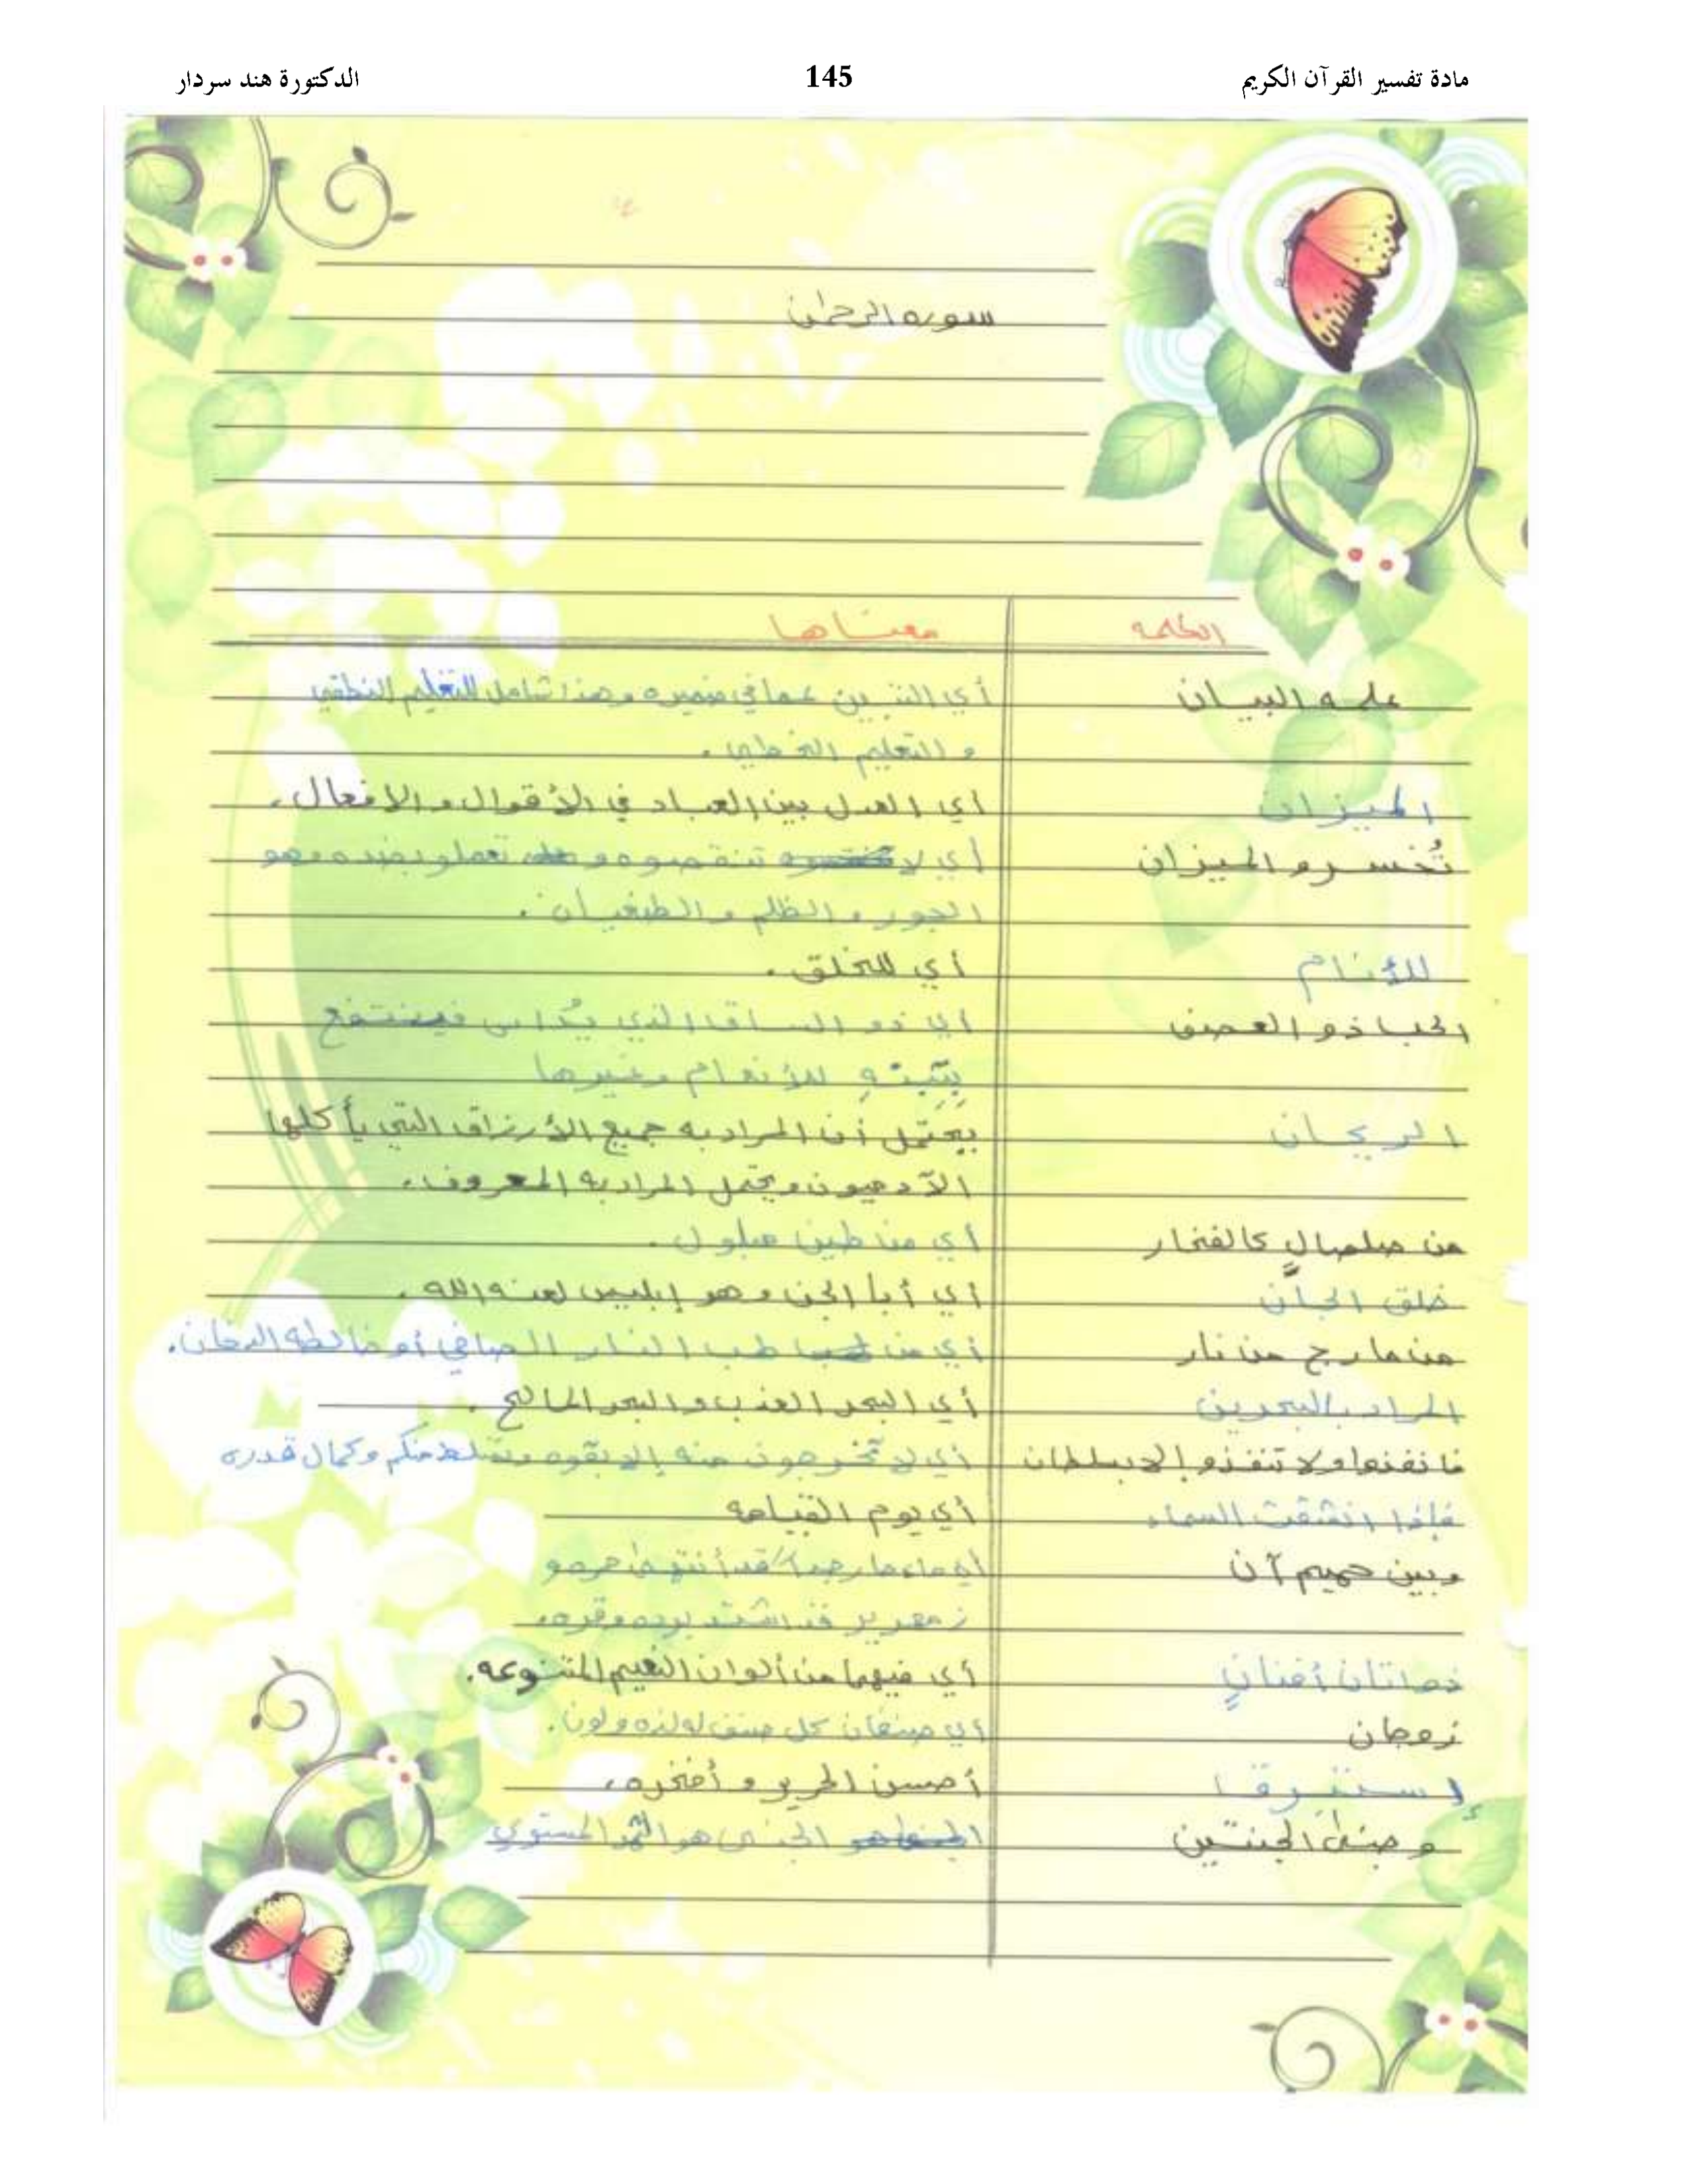 مادة تفسير القرآن الكريم 145 الدكتورة هند سردار
سوره الرحمٰن
الكلمه معناها
علمه البيان أي التبين عما في ضميره وهذا شامل للتعليم النطقي
و التعليم الخطي .
الميزان أي العدل بين العباد في الأقوال و الافعال .
تُخسرو الميزان أي لا تنقصوه و تعملو بضده وهو
الجور و الظلم و الطغيان .
للأنام أي للخلق .
الحب ذو العصف أي ذو الساق الذي يُداس فينتفع
بِتِبنِهِ للأنعام وغيرها
الريحان يحتمل أن المراد به جميع الأرزاق التي يأكلها
الآدميون ويحتمل المراد به المعروف .
من صلصالٍ كالفخار أي من طين مبلول .
خلق الجانَّ أي أبا الجن و هو إبليس لعنه الله .
من مارج من نار أي من لهب النار الصافي أو خالطه الدخان .
المراد بالبحرين أي البحر العذب و البحر المالح .
فانفذوا ولا تنفذو إلا بسلطان أي لا تخرجون منه إلا بقوه وتسلط منكم وكمال قدره
فإذا انشقت السماء أي يوم القيامه
وبين حميم آن أي ماء حار جداً قد أنتهى حره و
زمهرير قد اشتد برده وقره .
ذواتان أفنانٍ أي فيهما من ألوان النعيم المتنوعه .
زوجان أي صنفان كل صنف له لذه ولون .
إستبرق أحسن الحرير و أفخره .
و جنى الجنتين الجنى هو الثمر المستوي